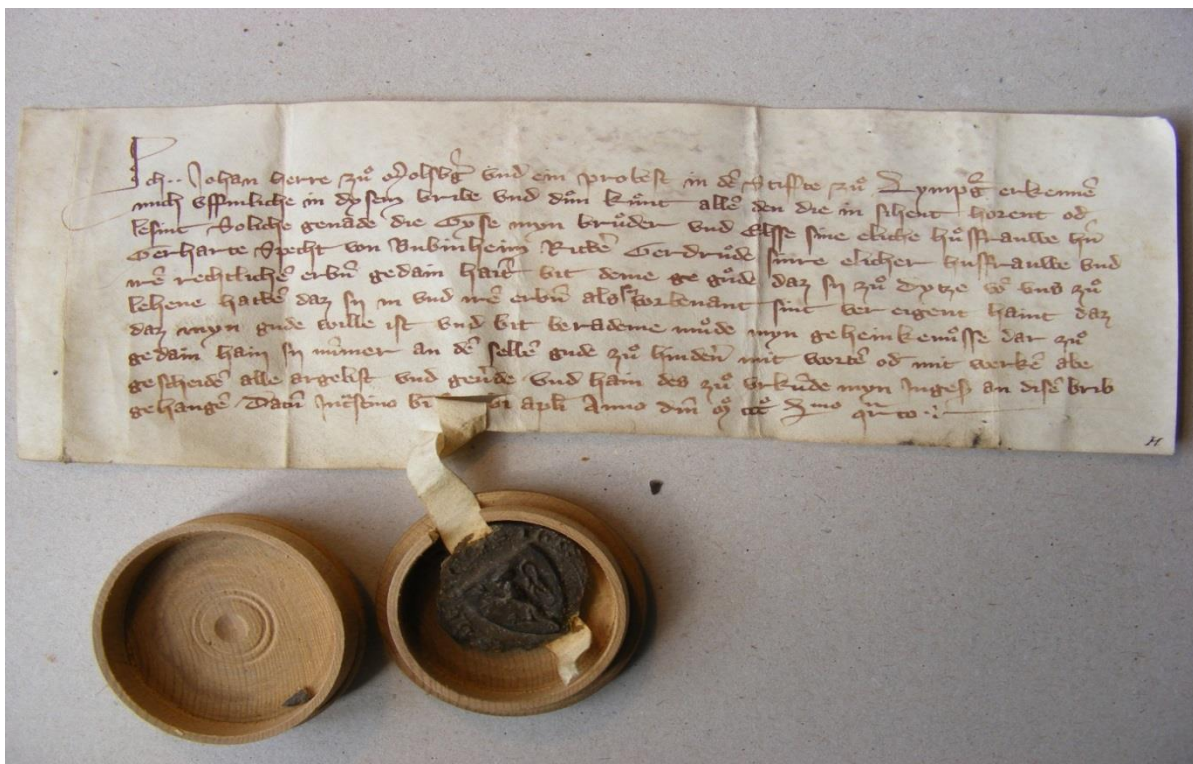 Ich .. Johan herre zuͦ Molsbg̃ und ein probest in dē Stiffte zuͦ Lympg̃ erkennē
mich uffinliche in dysem bribe und duͦn kuͦnt allē den die in sihent horent od̄
lesint Soliche genade die Gyse myn bruͦder und Elsse sine eliche huͦsfrauwe hn̄
Gerharte Specht von Bubinheim Rittē Gerdruͦde sinre elicher husfrauwe und
irē rechtlichē erbin gedain hait bit deme ge guͦde daz sy zuͦ Dytze vō uns zuͦ
lehene hattē daz sy in und irē erbin als vorbenant sint ver eigent haint daz
daz myn gude wille ist und bit beradeine muͦde myn geheinkenuͦsse dar zuͦ
gedain hain sy nūmer an dē selbē gude zuͦ hindern mit wortē od̄ mit werkē abe
gescheidē alle argelist und gev̄de und hain des zuͦ urkūde myn Ingeß an disē brib
gehangē Datū apli Anno dm̄ Mͦ cccͦ Lmo qͣrto
H